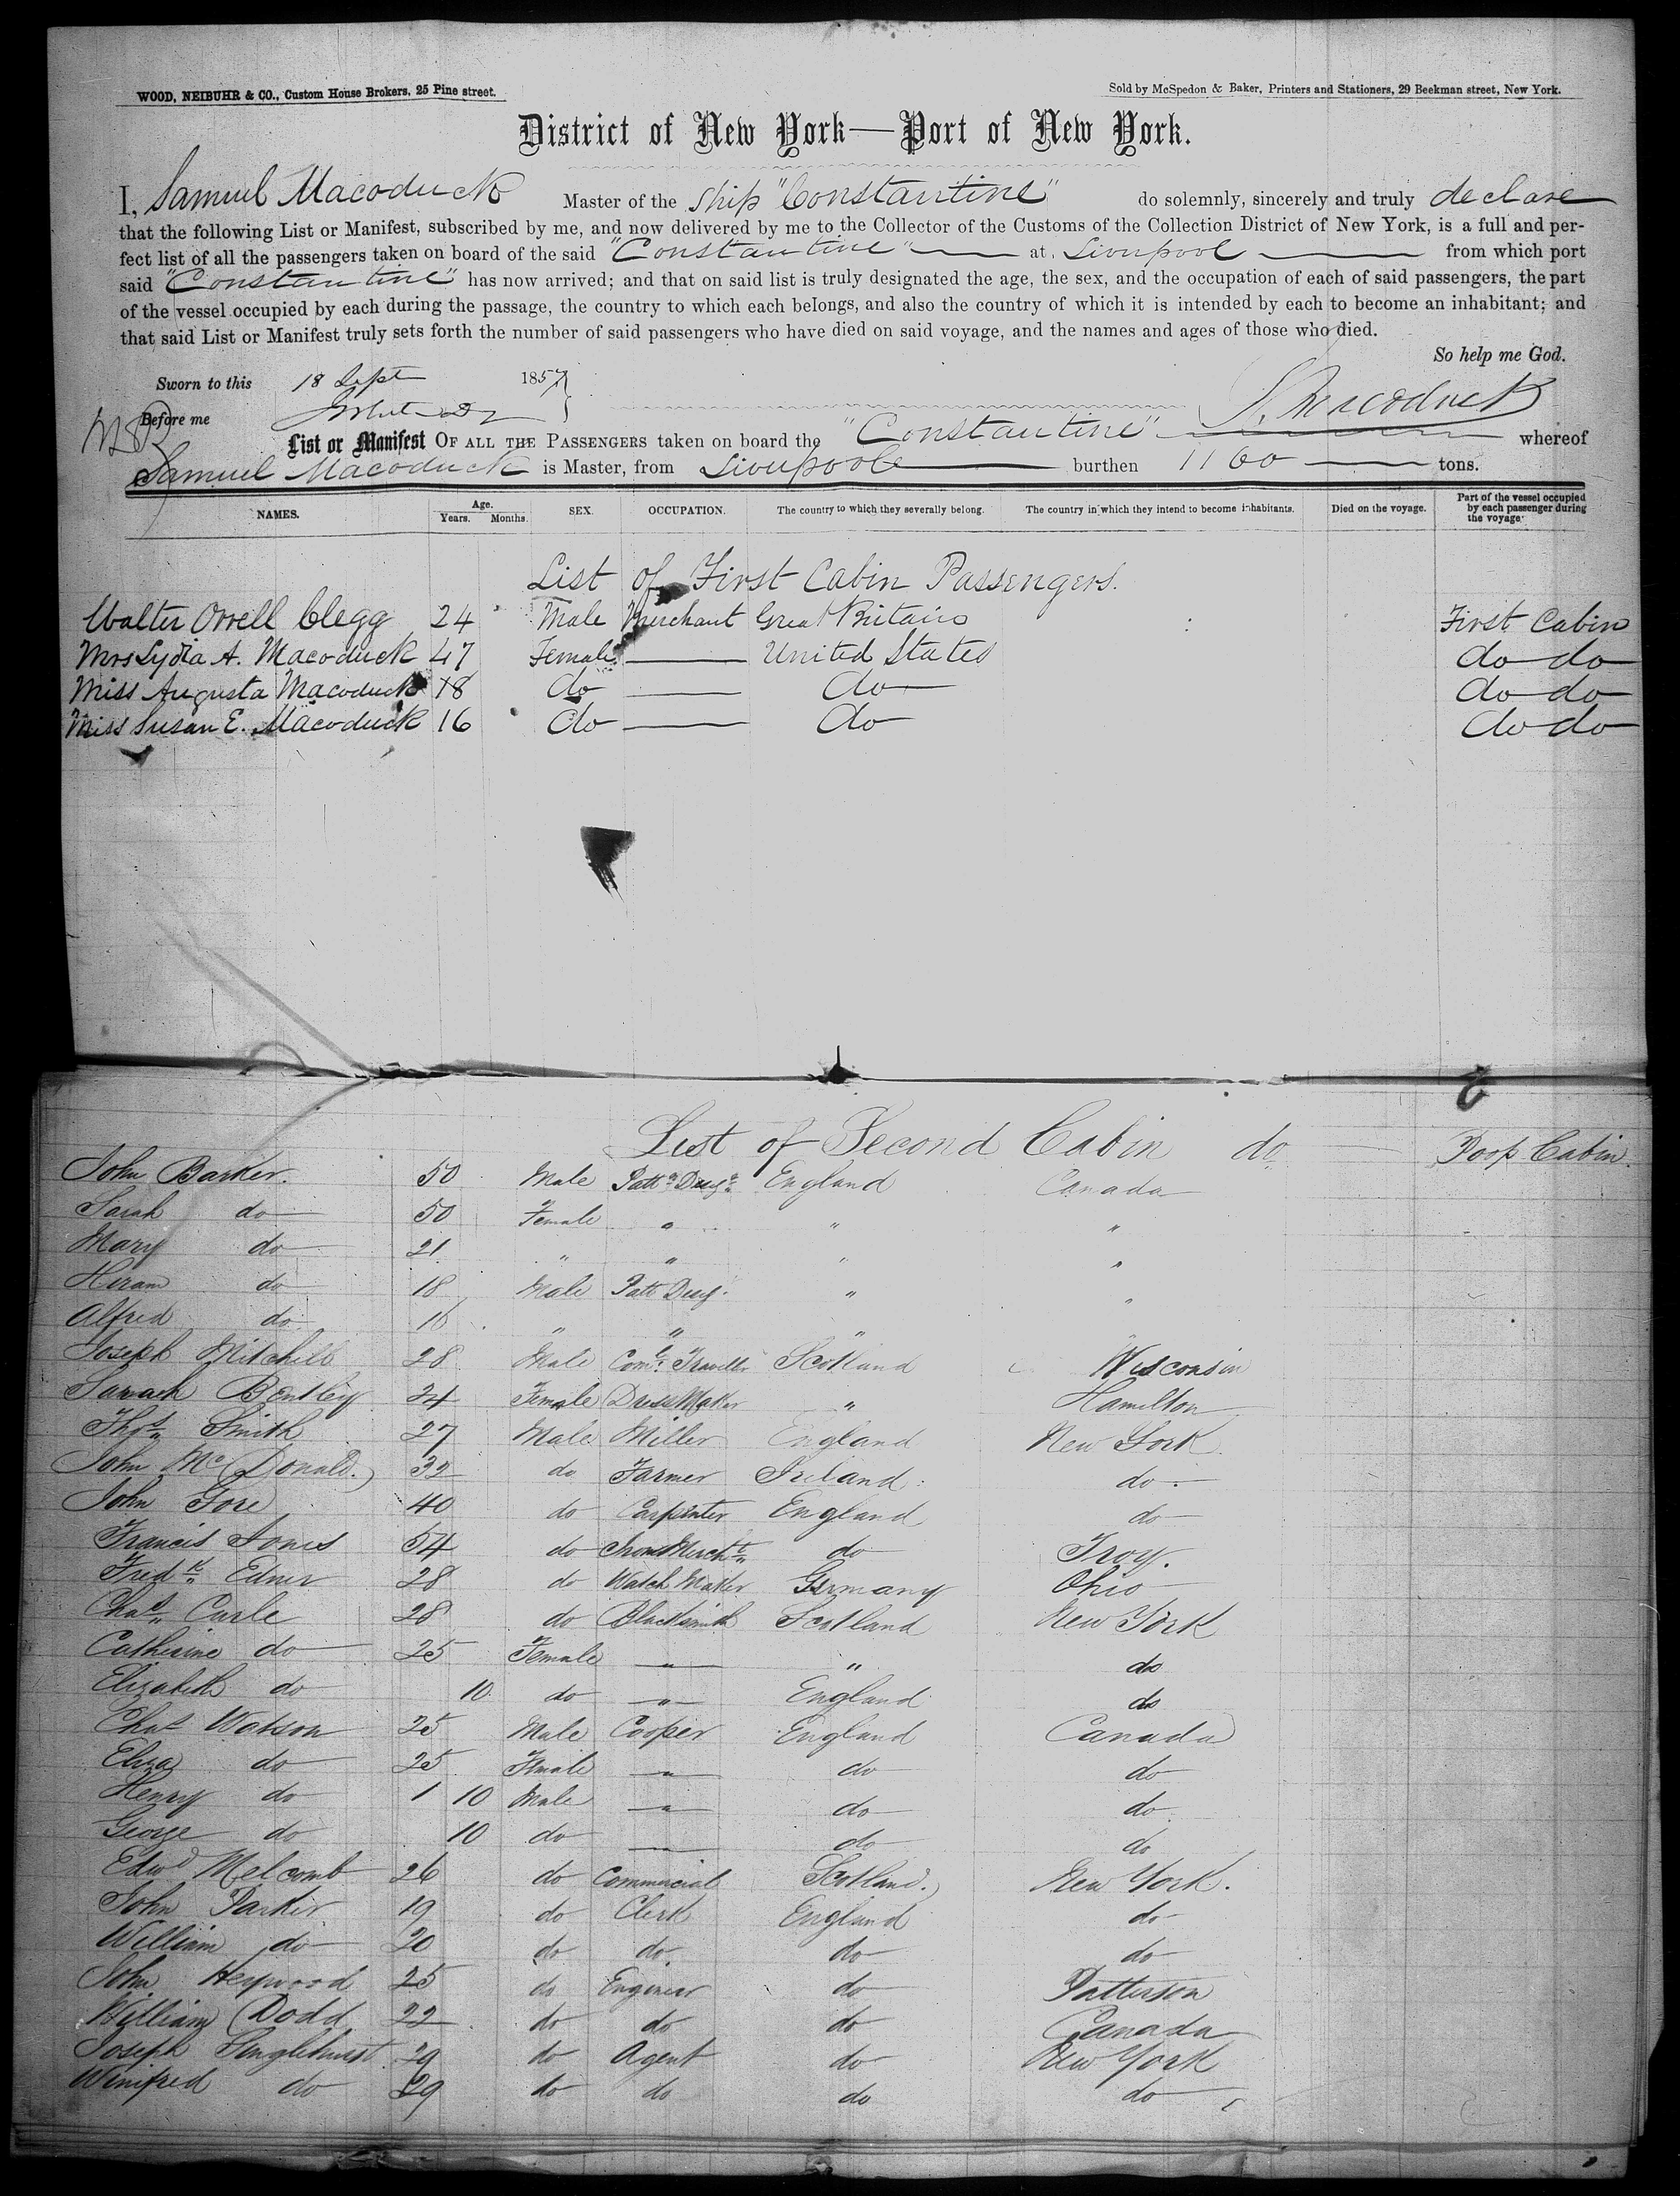 WOOD, NEIBUHR & CO., Custom House Brokers, 25 Pine street.
Sold by McSpedon & Baker, Printers and Stationers, 29 Beekman street, New York.
District of New York—Port of New York.
I, Samuel Macoduck Master of the Ship "Constantine" do solemnly, sincerely and truly declare
that the following List or Manifest, subscribed by me, and now delivered by me to the Collector of the Customs of the Collection District of New York, is a full and per-
fect list of all the passengers taken on board of the said "Constantine" at Liverpool from which port
said "Constantine" has now arrived; and that on said list is truly designated the age, the sex, and the occupation of each of said passengers, the part
of the vessel occupied by each during the passage, the country to which each belongs, and also the country of which it is intended by each to become an inhabitant; and
that said List or Manifest truly sets forth the number of said passengers who have died on said voyage, and the names and ages of those who died.
So help me God.
Sworn to this 18 Sept 1857
Before me
S. Macoduck
List or Manifest OF ALL THE PASSENGERS taken on board the "Constantine" whereof
Samuel Macoduck is Master, from Liverpool burthen 1160 tons.
NAMES. Age. Years. Months. SEX. OCCUPATION. The country to which they severally belong. The country in which they intend to become inhabitants. Died on the voyage. Part of the vessel occupied by each passenger during the voyage.
List of First Cabin Passengers.
Walter Orrell Clegg 24 Male Merchant Great Britain First Cabin
Mrs Lydia A. Macoduck 47 Female United States do do
Miss Augusta Macoduck 18 do do do do
Miss Susan E. Macoduck 16 do do do do
List of Second Cabin do Poop Cabin.
John Barker. 50 Male Pattn Desigr England Canada
Sarah do 50 Female " " "
Mary do 21 " " " "
Hiram do 18 Male Patt Desg. " "
Alfred do 16 " " "
Joseph Mitchell 28 Male Coml Traveller Scotland Wisconsin
Sarach Bentley 24 Female Dress Maker " Hamilton
Thos Smith 27 Male Miller England New York.
John McDonald. 32 do Farmer Ireland do
John Gore 40 do Carpenter England do
Francis Jones 54 do Iron Mercht do Troy.
Fredk Edner 28 do Watch Maker Germany Ohio
Chas Carle 28 do Blacksmith Scotland New York
Catherine do 25 Female " " do
Elizabeth do 10 do " England do
Chas Watson 25 Male Cooper England Canada
Eliza do 25 Female " do do
Henry do 1 10 Male " do do
George do 10 do do do
Edwd Melcomb 26 do Commercial Scotland. New York.
John Parker 19 do Clerk England do
William do 20 do do do do
John Heywood 25 do Engineer do Patterson
William Dodd 22 do do do Canada
Joseph Singlehurst 29 do Agent do New York
Winifred do 29 do do do do